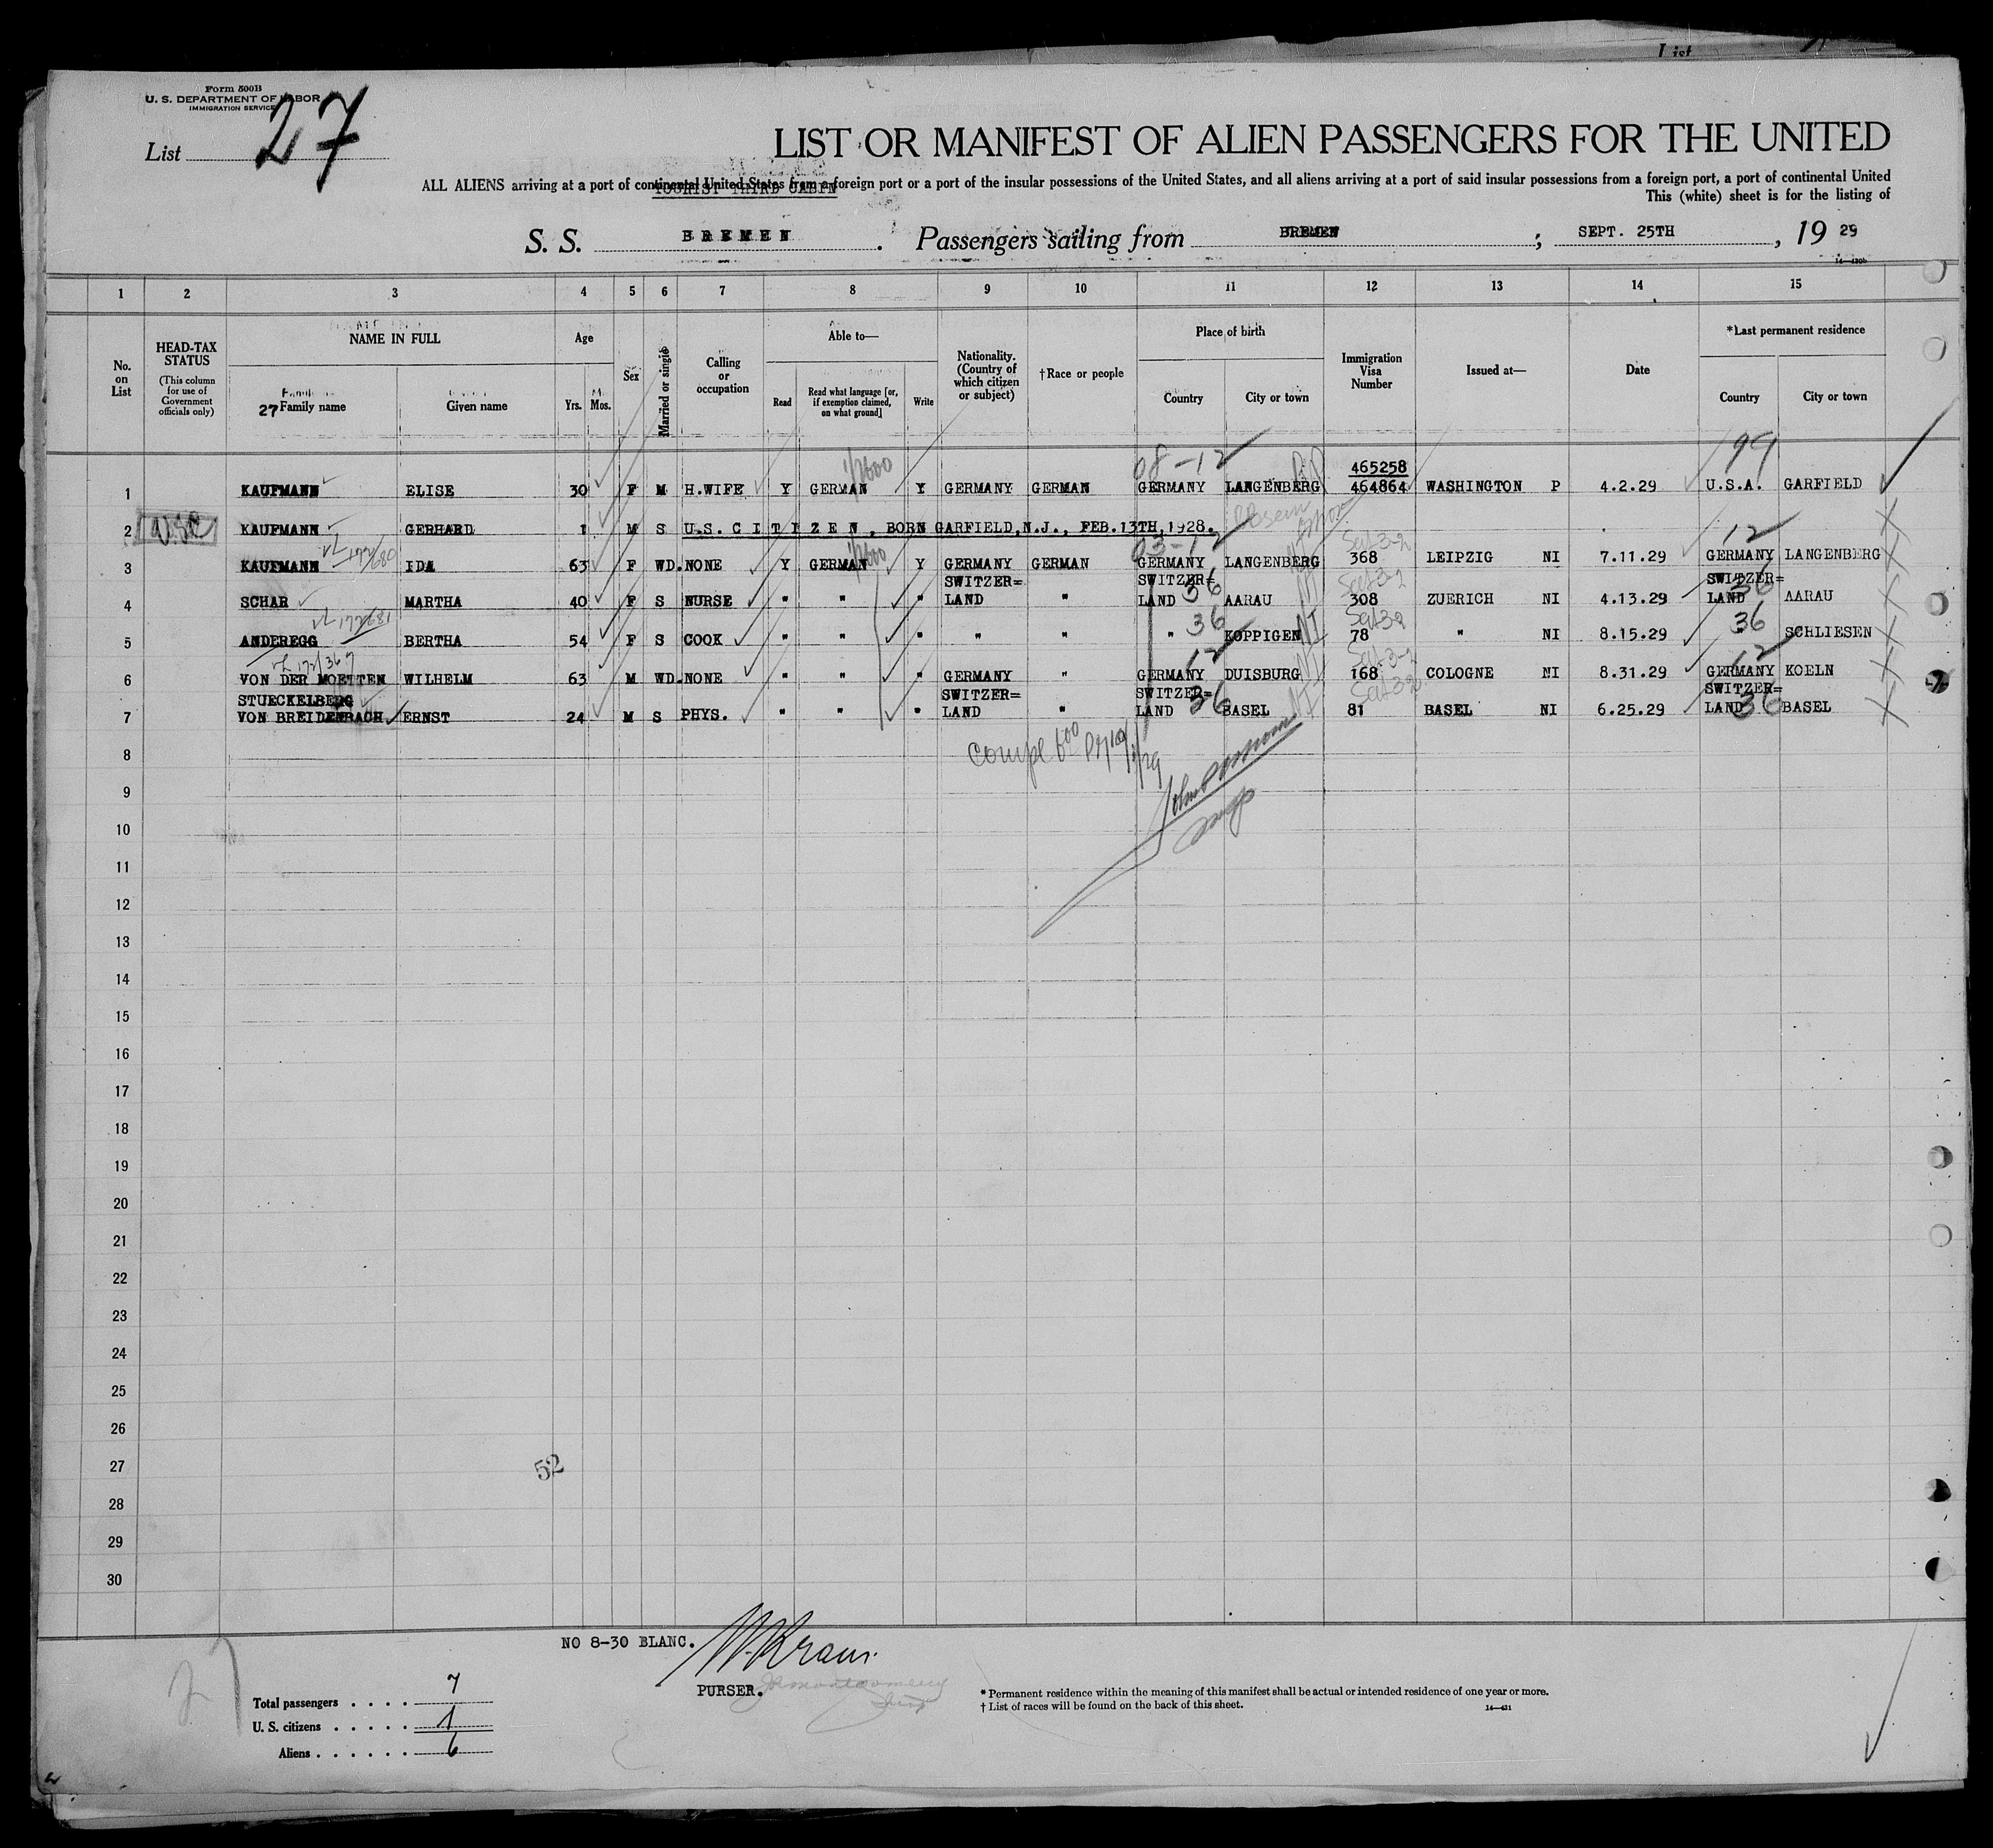 List
Form 500B
U. S. DEPARTMENT OF LABOR
IMMIGRATION SERVICE
List 27
LIST OR MANIFEST OF ALIEN PASSENGERS FOR THE UNITED
ALL ALIENS arriving at a port of continental United States from a foreign port or a port of the insular possessions of the United States, and all aliens arriving at a port of said insular possessions from a foreign port, a port of continental United
TOURIST THIRD CABIN
This (white) sheet is for the listing of
S. S. BREMEN . Passengers sailing from BREMEN ; SEPT. 25TH , 19 29
1 2 3 4 5 6 7 8 9 10 11 12 13 14 15
No. on List
HEAD-TAX STATUS
(This column for use of Government officials only)
NAME IN FULL
27 Family name
Given name
Age
Yrs. Mos.
Sex
Married or single
Calling or occupation
Able to—
Read
Read what language [or, if exemption claimed, on what ground]
Write
Nationality. (Country of which citizen or subject)
†Race or people
Place of birth
Country
City or town
Immigration Visa Number
Issued at—
Date
*Last permanent residence
Country
City or town
08-12 99
465258
1 KAUFMANN ELISE 30 F M H.WIFE Y GERMAN Y GERMANY GERMAN GERMANY LANGENBERG 464864 WASHINGTON P 4.2.29 U.S.A. GARFIELD
2 KAUFMANN GERHARD 1 M S U.S. CITIZEN, BORN GARFIELD, N.J., FEB.13TH, 1928.
03-12 12
3 KAUFMANN 172/680 IDA 63 F WD. NONE Y GERMAN Y GERMANY GERMAN GERMANY LANGENBERG 368 LEIPZIG NI 7.11.29 GERMANY LANGENBERG
4 SCHAR MARTHA 40 F S NURSE " " " SWITZER=LAND " SWITZER=LAND 36 AARAU 308 ZUERICH NI 4.13.29 SWITZER=LAND 36 AARAU
5 ANDEREGG 172/681 BERTHA 54 F S COOK " " " " " " 36 KOPPIGEN NI 78 " NI 8.15.29 " 36 SCHLIESEN
6 VON DER MOETTEN WILHELM 63 M WD. NONE " " " GERMANY " GERMANY 12 DUISBURG NI 168 COLOGNE NI 8.31.29 GERMANY 12 KOELN
7 STUECKELBERG VON BREIDENBACH ERNST 24 M S PHYS. " " " SWITZER=LAND " SWITZER=LAND 36 BASEL NI 81 BASEL NI 6.25.29 SWITZER=LAND 36 BASEL
8
9
10
11
12
13
14
15
16
17
18
19
20
21
22
23
24
25
26
27
28
29
30
52
NO 8-30 BLANC.
W. Kraus
PURSER.
27
Total passengers . . . . 7
U. S. citizens . . . . . 1
Aliens . . . . . . 6
* Permanent residence within the meaning of this manifest shall be actual or intended residence of one year or more.
† List of races will be found on the back of this sheet.
14—431